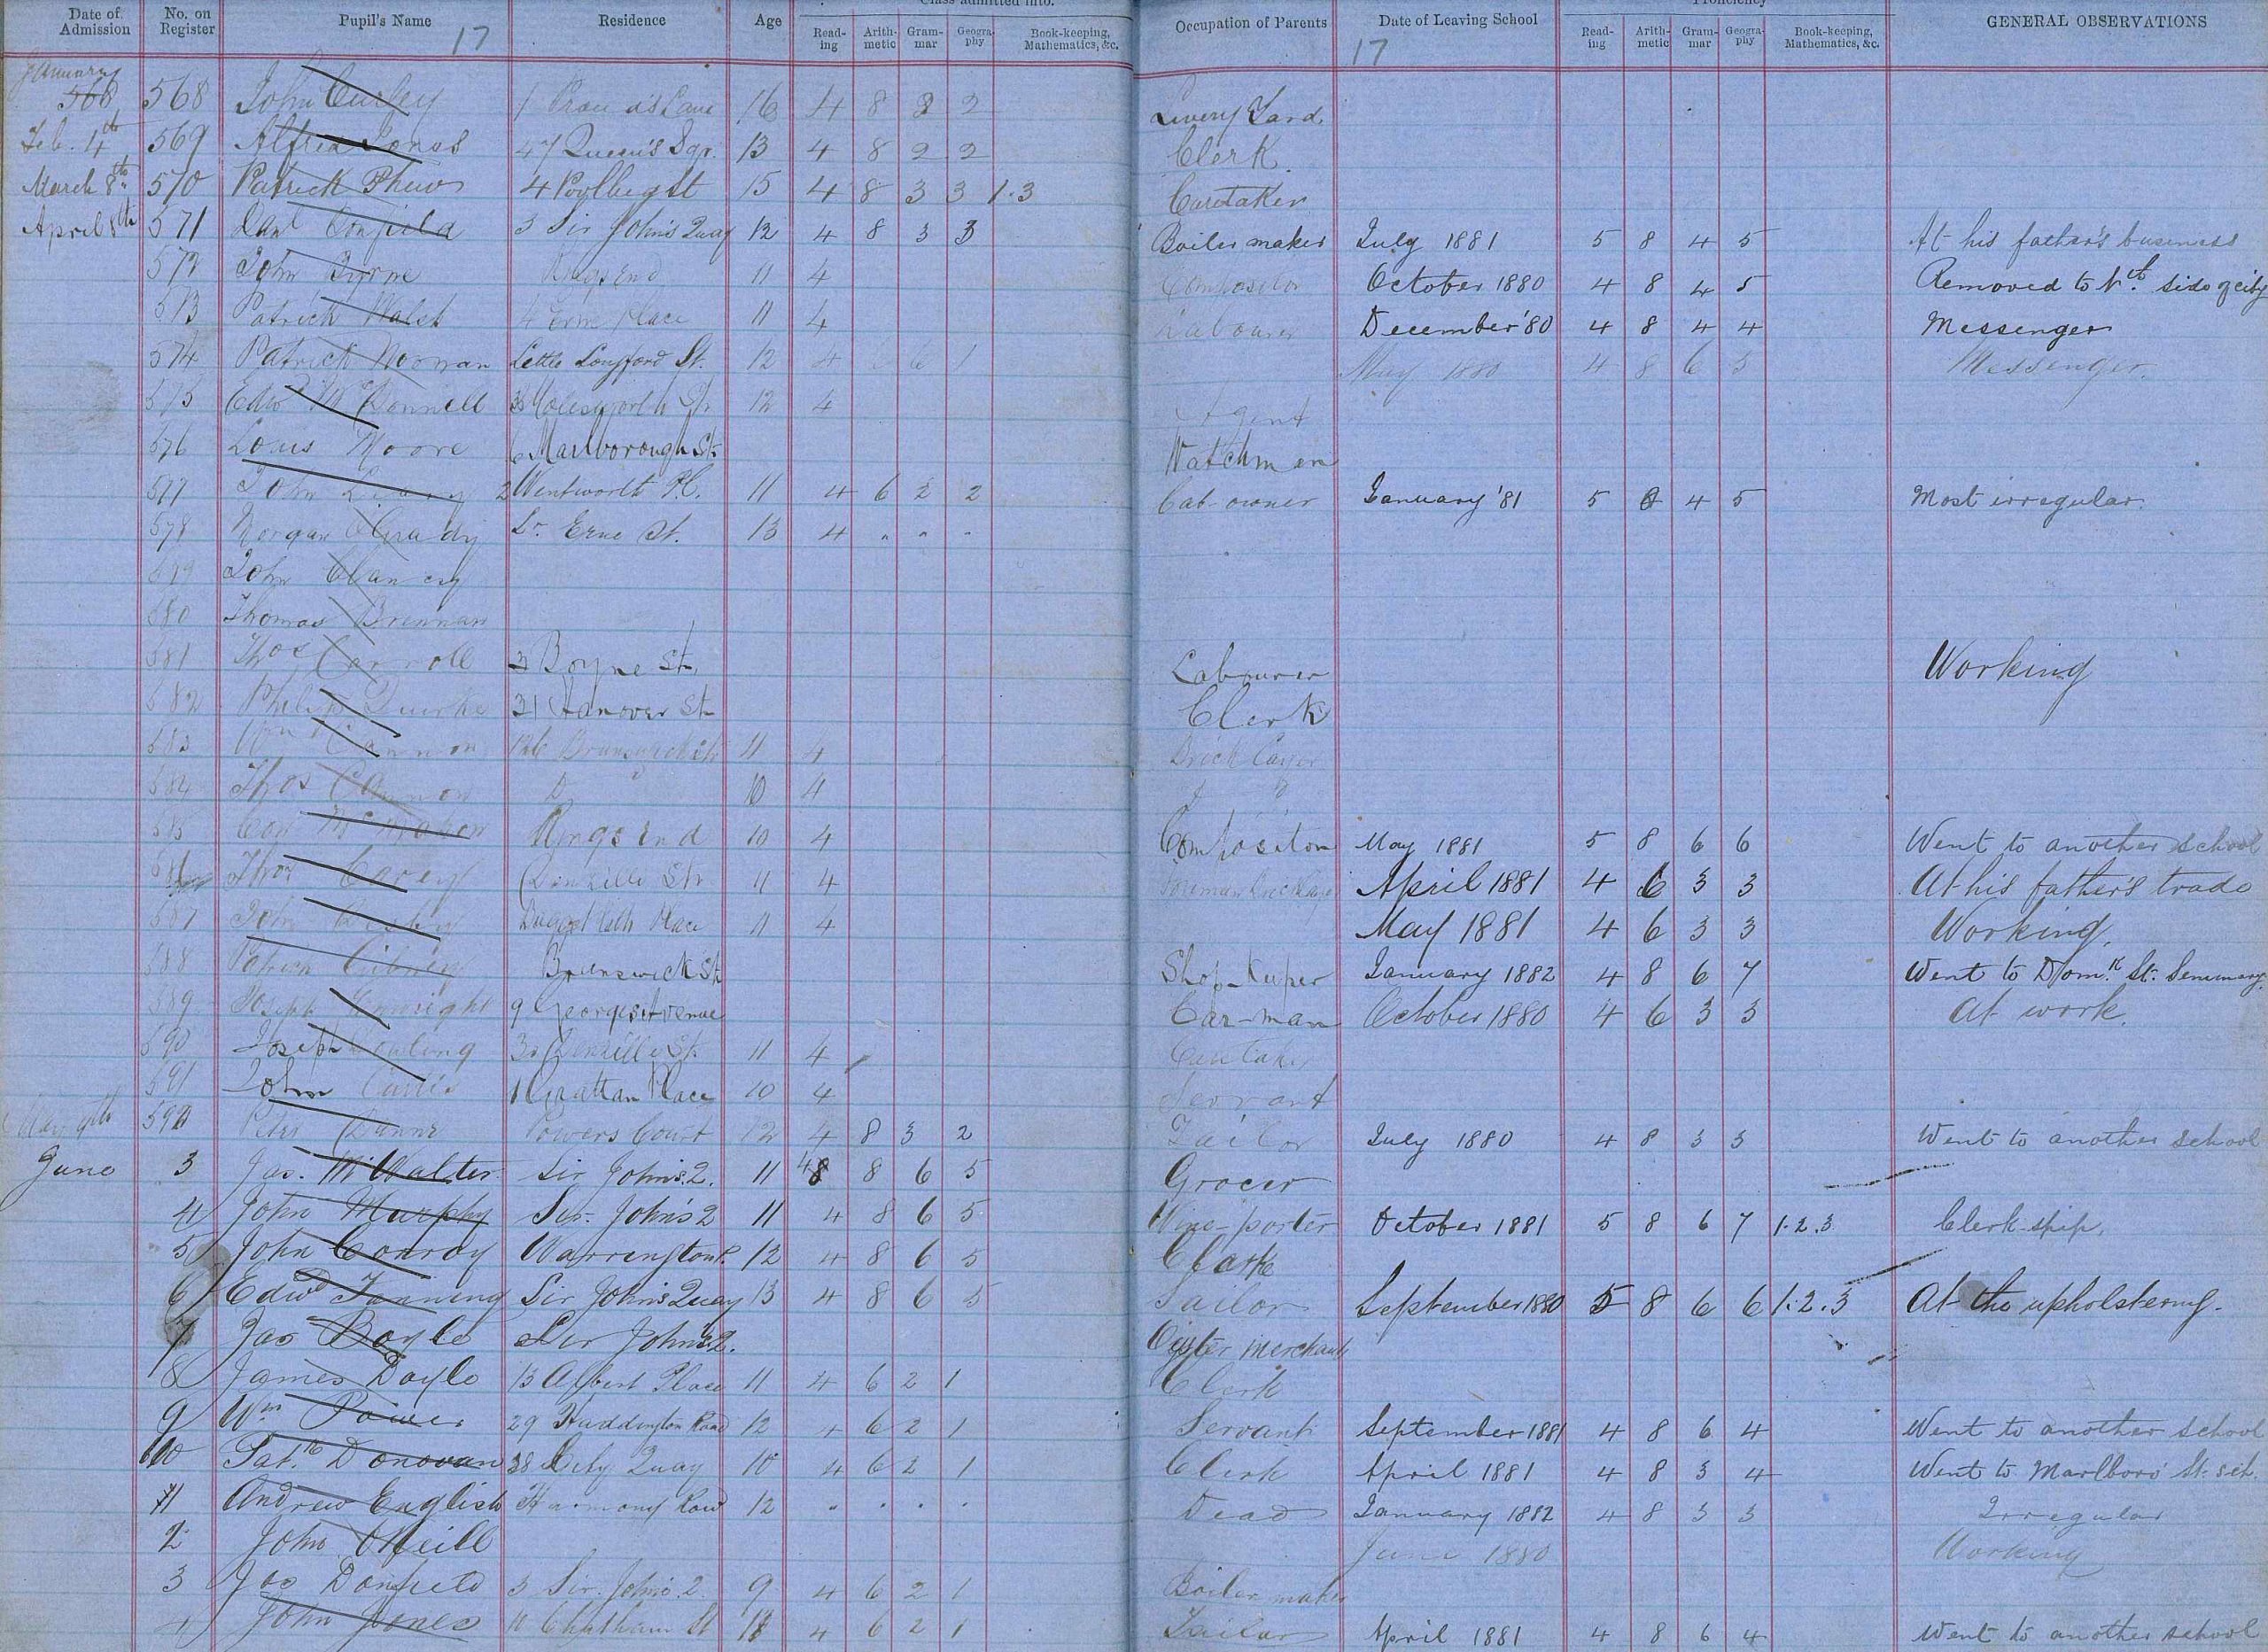 Date of Admission No. on Register Pupil's Name Residence Age Class admitted into. Read-ing Arith-metic Gram-mar Geogra-phy Book-keeping, Mathematics, &c. Occupation of Parents Date of Leaving School Proficiency Read-ing Arith-metic Gram-mar Geogra-phy Book-keeping, Mathematics, &c. GENERAL OBSERVATIONS
17 17
January
568 568 John Curley 1 Lane 16 4 8 2 2 Livery Yard
Feb. 4th 569 Alfred 47 Queen's Sqr. 13 4 8 2 2 Clerk
March 8th 570 Patrick 4 Poolbeg St 15 4 8 3 3 1.3 Caretaker
April 8th 571 Danl 3 Sir John's Quay 12 4 8 3 3 Boiler maker July 1881 5 8 4 5 At his father's business
572 John Byrne Ringsend 11 4 Compositor October 1880 4 8 4 5 Removed to Nth. side of city
573 Patrick Walsh 4 Erne Place 11 4 Labourer December '80 4 8 4 4 Messenger
574 Patrick Noonan Little Longford St. 12 4 6 6 1 May 1880 4 8 6 5 Messenger.
575 Edwd McDonnell Molesworth St. 12 4 Agent
576 Louis Moore 6 Marlborough St. Watchman
577 John Leary 2 Wentworth Pl. 11 4 6 2 2 Cab-owner January '81 5 8 4 5 Most irregular.
578 Morgan O'Grady Lr. Erne St. 13 4 " " " 
579 John Clancy
580 Thomas Brennan
581 Thos Carroll 3 Boyne St. Labourer Working
582 Philip Quirke 31 Hanover St Clerk
583 Wm Cannon Brunswick St 11 4 Brick Layer
584 Thos Cannon Do 10 4 Do
585 Con McMahon Ringsend 10 4 Compositor May 1881 5 8 6 6 Went to another school
586 Thos Carey Denzille St. 11 4 Foreman Bricklayer April 1881 4 6 3 3 At his father's trade
587 John Place 11 4 May 1881 4 6 3 3 Working.
588 Patrick Gibney Brunswick St Shop-Keeper January 1882 4 8 6 7 Went to Domk. St. Seminary.
589 Joseph Enwright 9 Georges Avenue Car-man October 1880 4 6 3 3 At work.
590 Joseph Dowling 30 Denzille St. 11 4 Caretaker
591 John Curtis 1 Grattan Place 10 4 Servant
May 9th 592 Peter Dunne Powers Court 12 4 8 3 2 Tailor July 1880 4 8 3 3 Went to another school
June 3 Jas. McWalter Sir John's. 2. 11 4 8 6 5 Grocer
4 John Murphy Sir. John's 2 11 4 8 6 5 Wine-porter October 1881 5 8 6 7 1.2.3 Clerk-ship.
5 John Conroy Warrington P. 12 4 8 6 5 Clarke
6 Edwd Fanning Sir John's Quay 13 4 8 6 5 Sailor September 1880 5 8 6 6 1.2.3 At the upholstering.
7 Jas Boyle Sir John's 2. Oyster Merchant
8 James Doyle 13 Albert Place 11 4 6 2 1 Clerk
9 Wm Power 29 Haddington Road 12 4 6 2 1 Servant September 1881 4 8 6 4 Went to another school
10 Patk. Donovan 38 City Quay 10 4 6 2 1 Clerk April 1881 4 8 3 4 Went to Marlboro' St. sch.
11 Andrew English Harmony Row 12 " " " " Dead January 1882 4 8 3 3 Irregular
2 John O'Neill June 1880 Working
3 Jas 3 Sir. John's. 2 9 4 6 2 1 Boiler maker
4 John Jones 10 Chatham St 4 6 2 1 Tailor April 1881 4 8 6 4 Went to another school